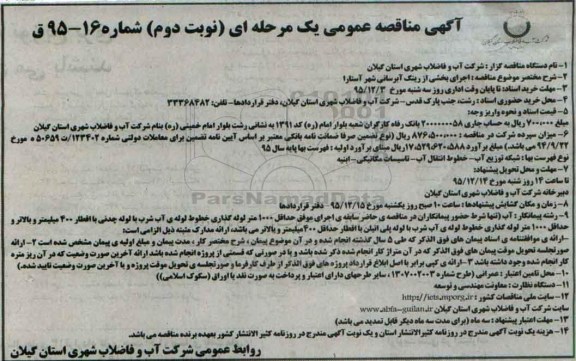 آگهی مناقصه عمومی یک مرحله ای (نوبت دوم) شماره ۱۶-۹۵ ق
شرکت آب و فاضلاب شهری استان گیلان
۱- نام دستگاه مناقصه گزار : شرکت آب و فاضلاب شهری استان گیلان
۲- شرح مختصر موضوع مناقصه : اجرای بخشی از رینگ آبرسانی شهر آستارا
۳- مهلت خرید اسناد: تا پایان وقت اداری روز سه شنبه مورخ ۹۵/۱۲/۳
۴- محل خرید حضوری اسناد : رشت، جنب پارک قدس- شرکت آب و فاضلاب شهری استان گیلان، دفتر قراردادها- تلفن: ۳۳۳۶۸۴۸۲
۵- قیمت اسناد و نحوه واریز وجه:
۷۰۰/۰۰۰ ریال به حساب جاری ۲۰۰۰۰۰۰۰۵۸ بانک رفاه کارگران شعبه بلوار امام (ره) کد ۱۳۹۱ به نشانی رشت بلوار امام خمینی (ره) بنام شرکت آب و فاضلاب شهری استان گیلان
۶- میزان سپرده شرکت در مناقصه : ۸۷۶/۵۰۰/۰۰۰ ریال (نوع تضمین صرفا ضمانت نامه بانکی معتبر بر اساس آیین نامه تضمین برای معاملات دولتی شماره ۱۲۳۴۰۲/ت ۵۰۶۵۹ ه مورخ
۹۴/۹/۲۲ می باشد) مبلغ برآورد ۱۷/۵۲۹/۶۲۰/۵۸۸ ریال مبنای برآورد اولیه : فهرست بها پایه سال ۹۵
نوع فهرست بها : شبکه توزیع آب- خطوط انتقال آب- تاسیسات مکانیکی- ابنیه
۷- مهلت و محل تحویل پیشنهاد:
تا ساعت ۱۴ روز شنبه مورخ ۹۵/۱۲/۱۴
دبیرخانه شرکت آب و فاضلاب شهری استان گیلان
۸- زمان و مکان گشایش پیشنهادها : ساعت ۱۰ صبح روز یکشنبه مورخ ۹۵/۱۲/۱۵- دفتر قراردادها
۹- رشته پیمانکار : آب (تنها شرط حضور پیمانکاران در مناقصه ی حاضر سابقه ی اجرای موفق حداقل ۱۰۰۰ متر لوله گذاری خطوط لوله ی آب شرب با لوله چدنی با اقطار ۴۰۰ میلیمتر و بالاتر و
حداقل ۱۰۰۰ متر لوله گذاری خطوط لوله ی آب شرب با لوله پلی اتیلن با اقطار حداقل ۴۰۰ میلیمتر و بالاتر می باشد، ارائه مدارک مثبته ذیل الزامی است:
۱- ارائه ی موافقتنامه ی اسناد پیمان های فوق الذکر که طی ۵ سال گذشته انجام شده و در آن موضوع پیمان ، شرح مختصر کار ، مدت پیمان و مبلغ اولیه ی پیمان مشخص شده است ۲- ارائه
صورتجلسه تحویل موقت پیمان های فوق الذکر که در آن متراژ کار انجام شده ذکر شده باشد و یا در صورتی که قسمتی از پروژه انجام شده باشد ارائه آخرین صورت وضعیت که در آن ریز متره
کار انجام شده وجود داشته باشد ۳- ارائه ی کپی برابر با اصل ابلاغ قرارداد پروژه های فوق الذکر از طرف کارفرما و صورتجلسه ی تحویل موقت پروژه و یا آخرین صورت وضعیت تایید شده.)
۱۰- محل تامین اعتبار : عمرانی (طرح شماره ۱۳۰۷۰۰۲۰۰۳ ، سایر طرحهای دارای اعتبار و پرداخت به صورت نقد یا اوراق (سکوک اسلامی))
۱۱- دستگاه نظارت : معاونت مهندسی و توسعه
۱۲- سایت ملی مناقصات کشور : http://iets.mporg.ir
سایت شرکت آب و فاضلاب شهری استان گیلان www.abfa-guilan.ir
۱۳- مهلت اعتبار پیشنهاد : سه ماه (برای مدت سه ماه دیگر قابل تمدید می باشد)
۱۴- هزینه یک نوبت آگهی مندرج در روزنامه کثیرالانتشار استان و یک نوبت آگهی مندرج در روزنامه کثیر الانتشار کشور بعهده برنده مناقصه می باشد.
روابط عمومی شرکت آب و فاضلاب شهری استان گیلان
ParsNamadData